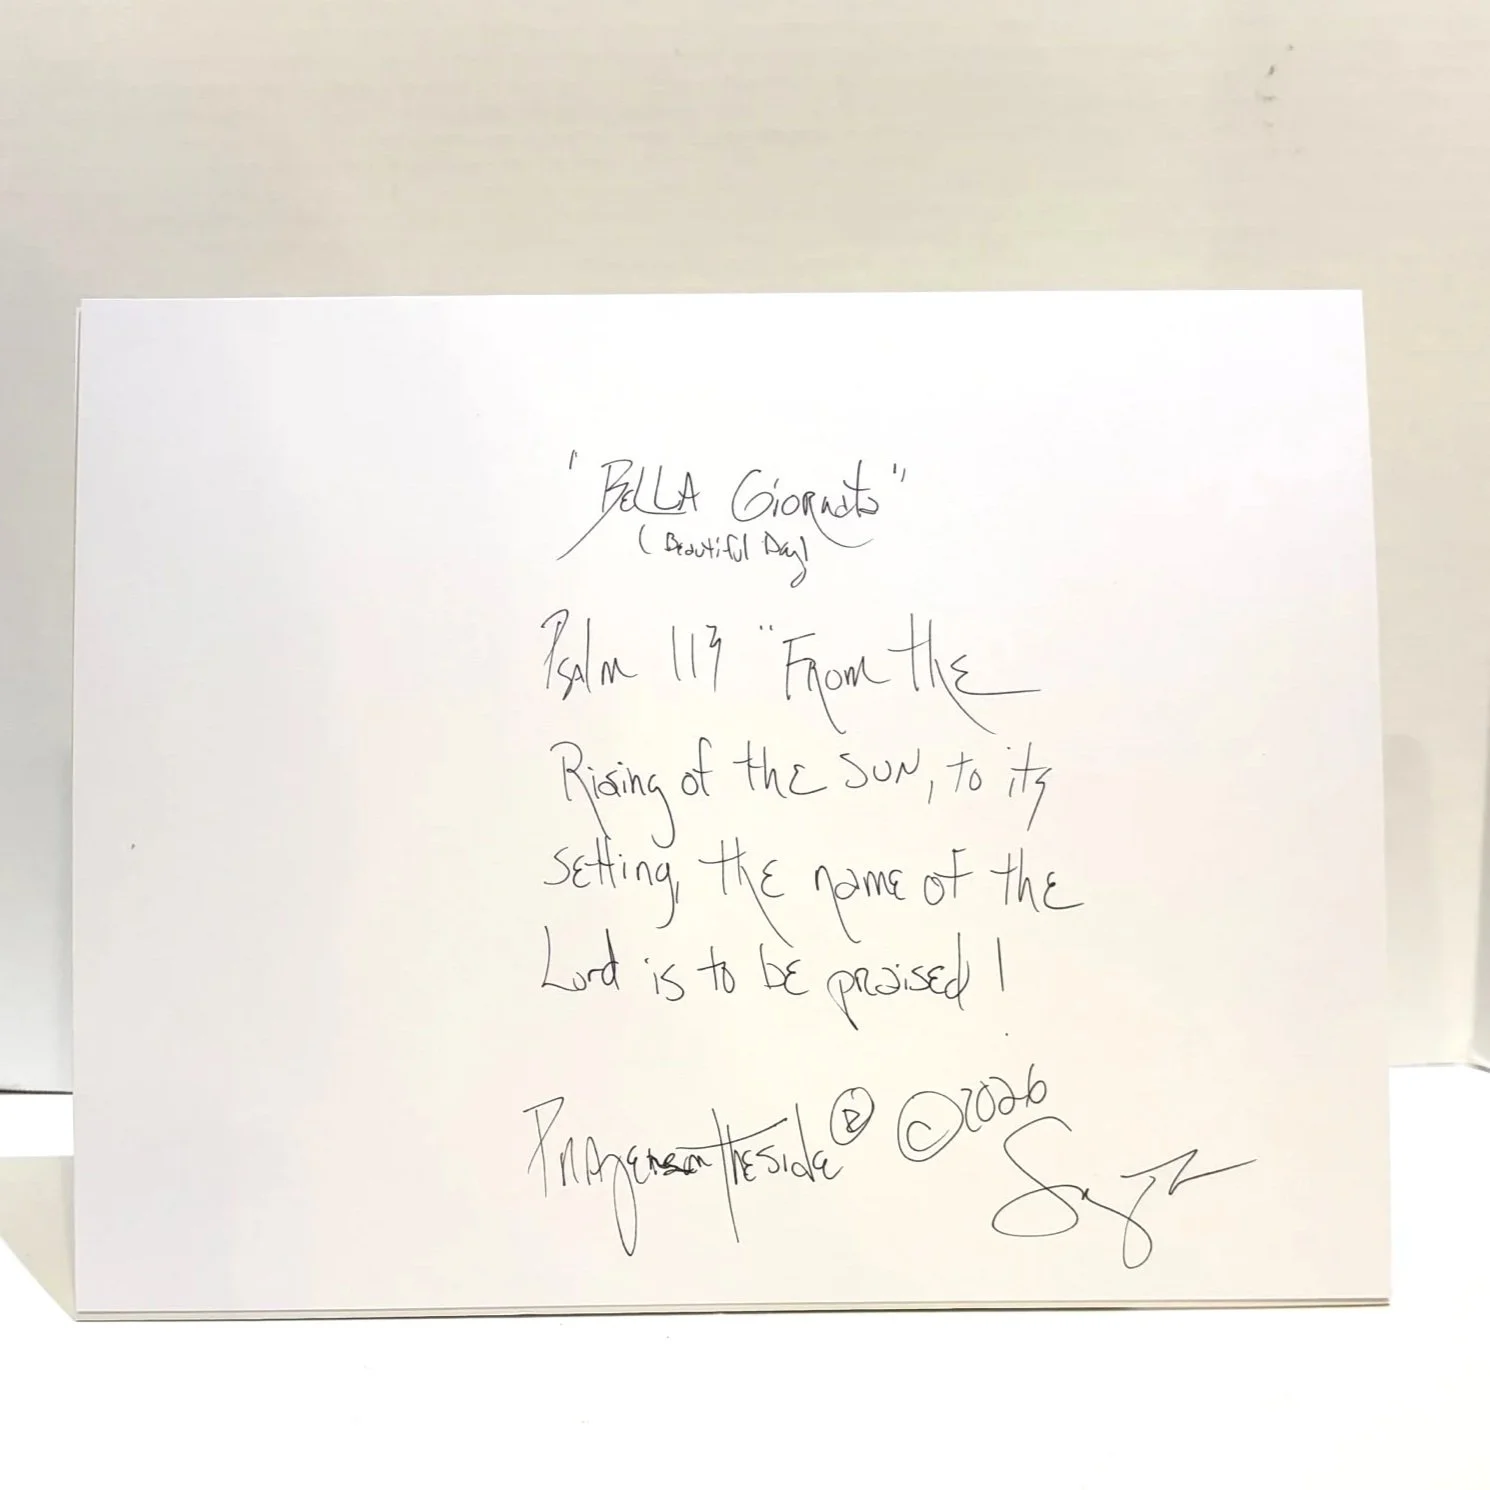 "BELLA Giornata"
(Beautiful Day)
Psalm 113 "From the
Rising of the SUN, to its
setting, the name of the
Lord is to be praised!
Prayersontheside ® © 2026